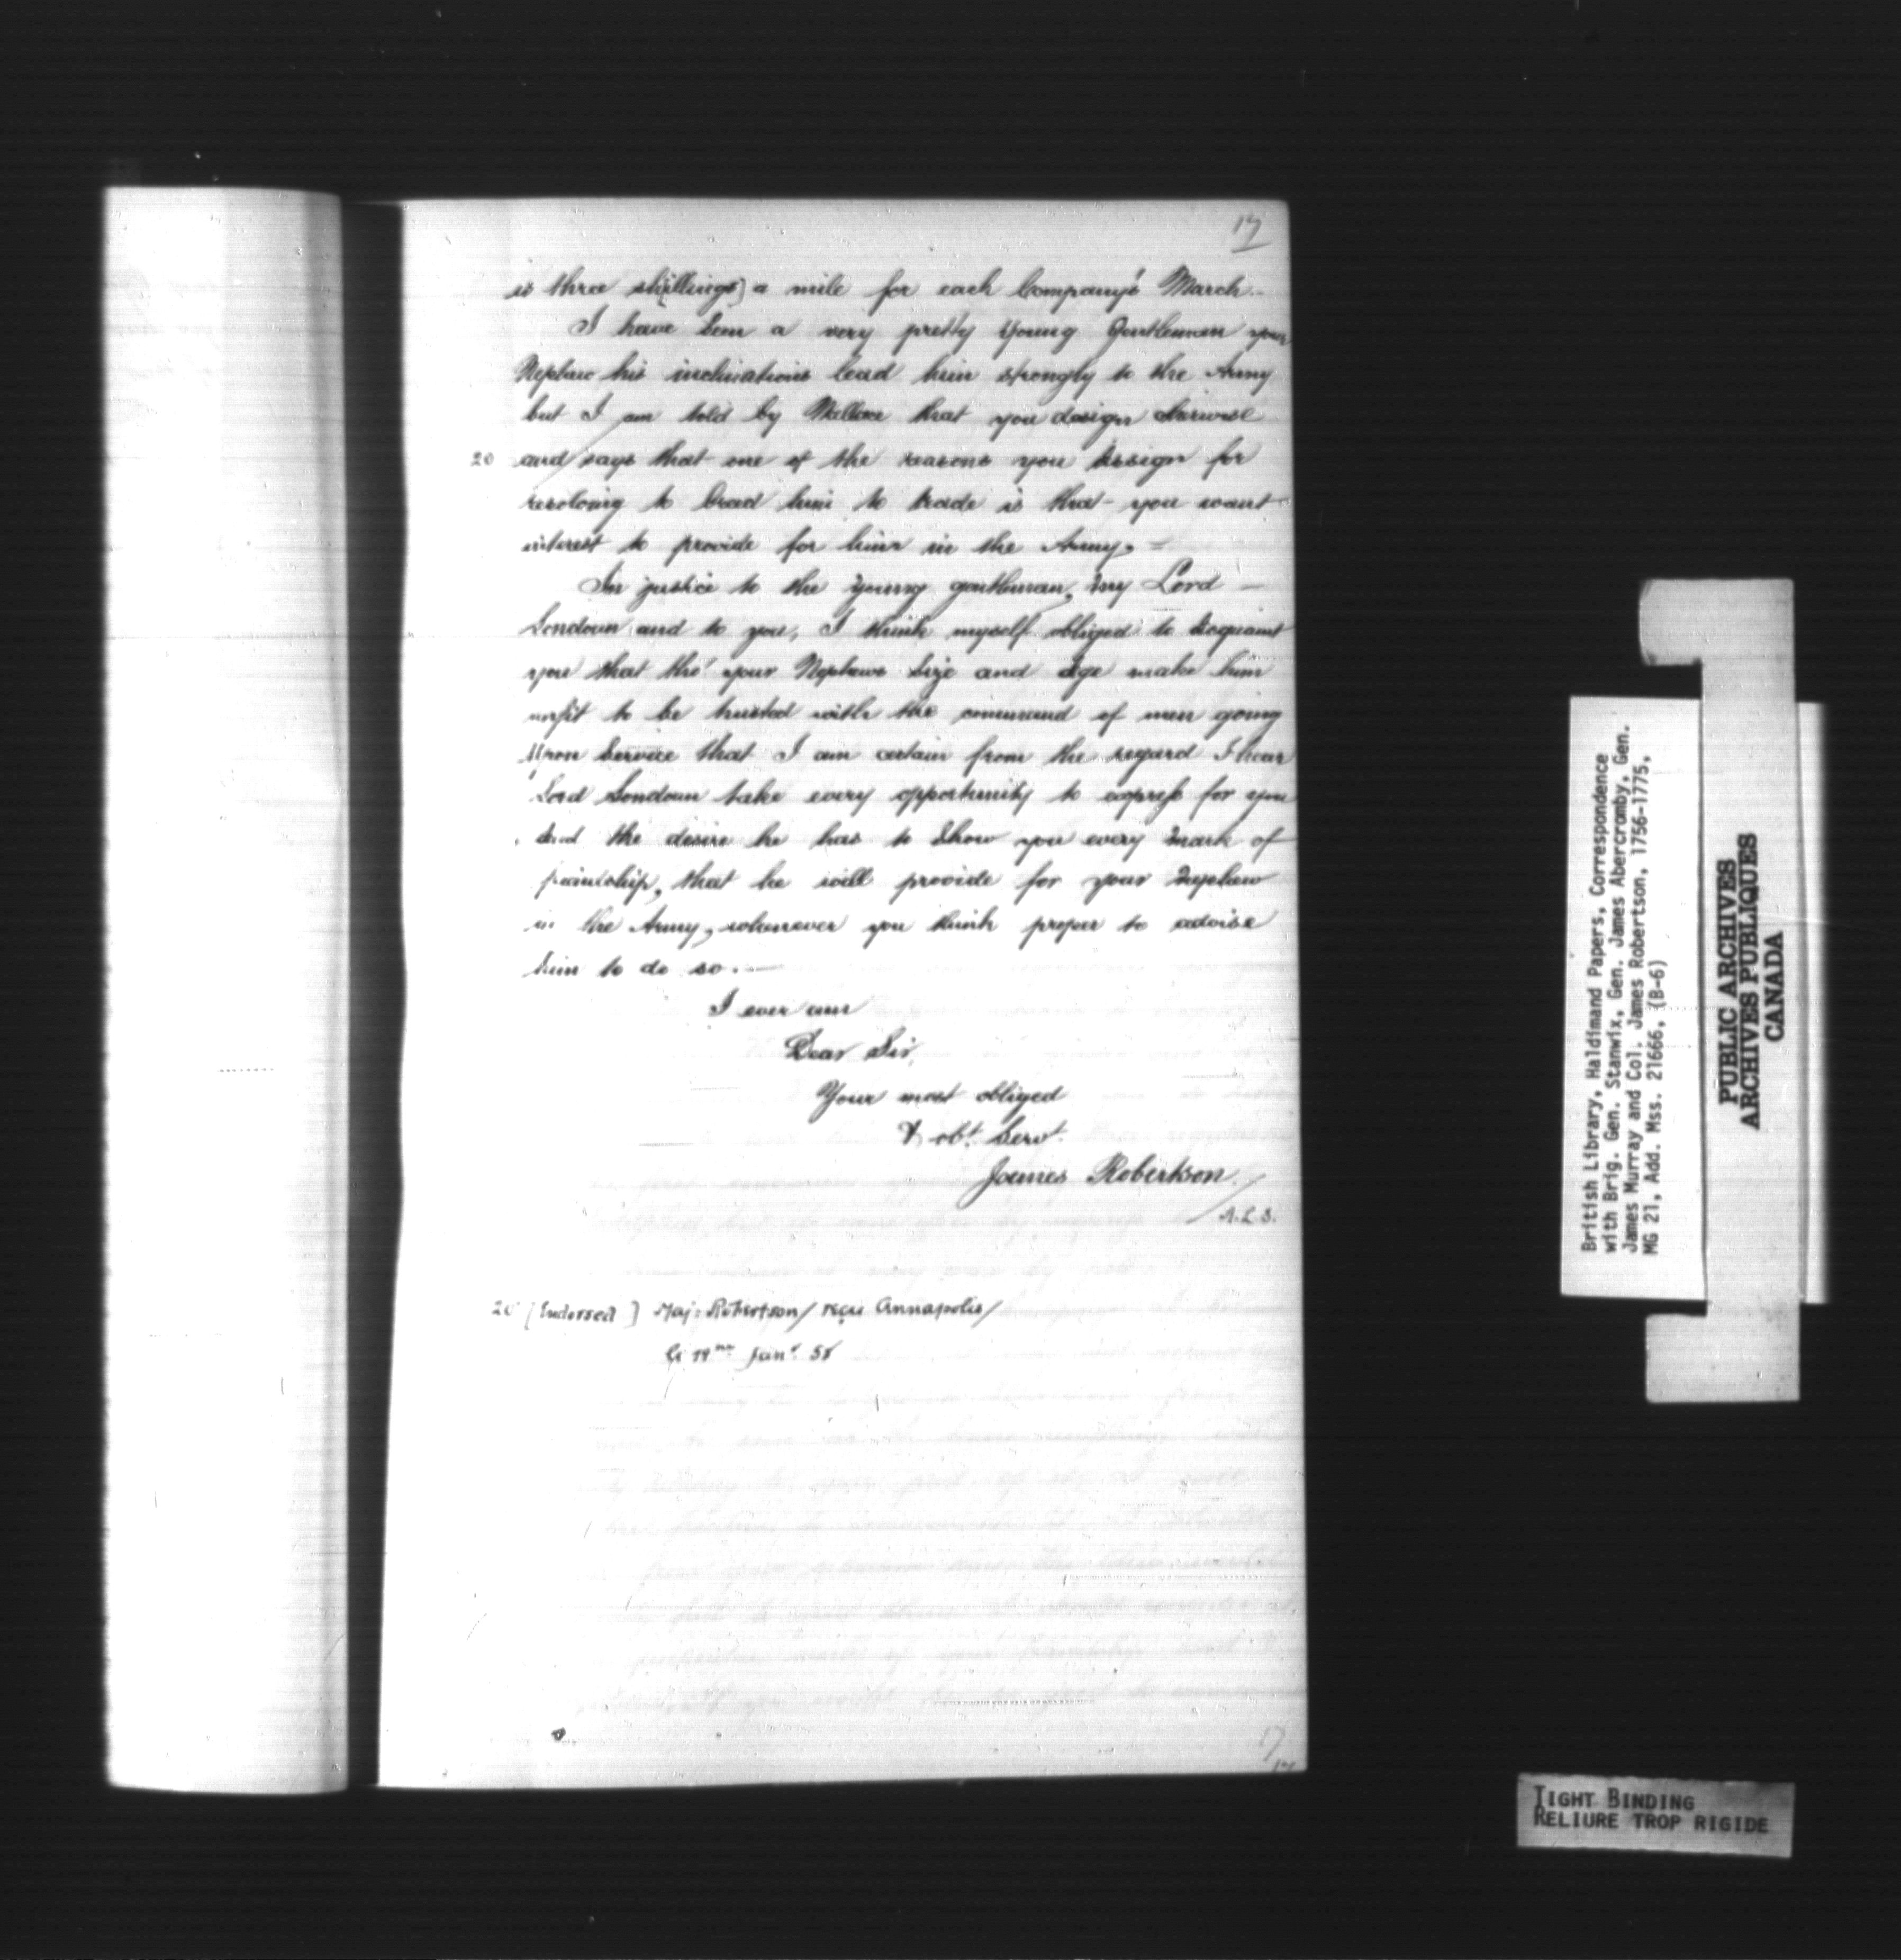 17
is three sh[illings] a mile for each Company's March.
I have seen a very pretty Young Gentleman your
Nephew his inclinations lead him strongly to the Army
but I am told by Wallace that you design otherwise
20 and says that one of the reasons you assign for
resolving to bread him to trade is that you want
interest to provide for him in the Army. =
In justice to the young gentleman, my Lord
Loudoun and to you, I think myself obliged to acquaint
you that tho' your Nephews Size and Age make him
unfit to be trusted with the command of men going
upon Service that I am certain from the regard I hear
Lord Loudoun take every opportunity to express for you
And the desire he has to Show you every mark of
friendship, that he will provide for your Nephew
in the Army, whenever you think proper to advise
him to do so. —
I ever am
Dear Sir,
Your most obliged
& obt. Servt.
James Robertson.
A.L.S.
20 [Endorsed] Maj: Robertson/ reçu Annapolis/
17
British Library, Haldimand Papers, Correspondence
with Brig. Gen. Stanwix, Gen. James Abercromby, Gen.
James Murray and Col. James Robertson, 1756-1775,
MG 21, Add. Mss. 21666, (B-6)
PUBLIC ARCHIVES
ARCHIVES PUBLIQUES
CANADA
TIGHT BINDING
RELIURE TROP RIGIDE